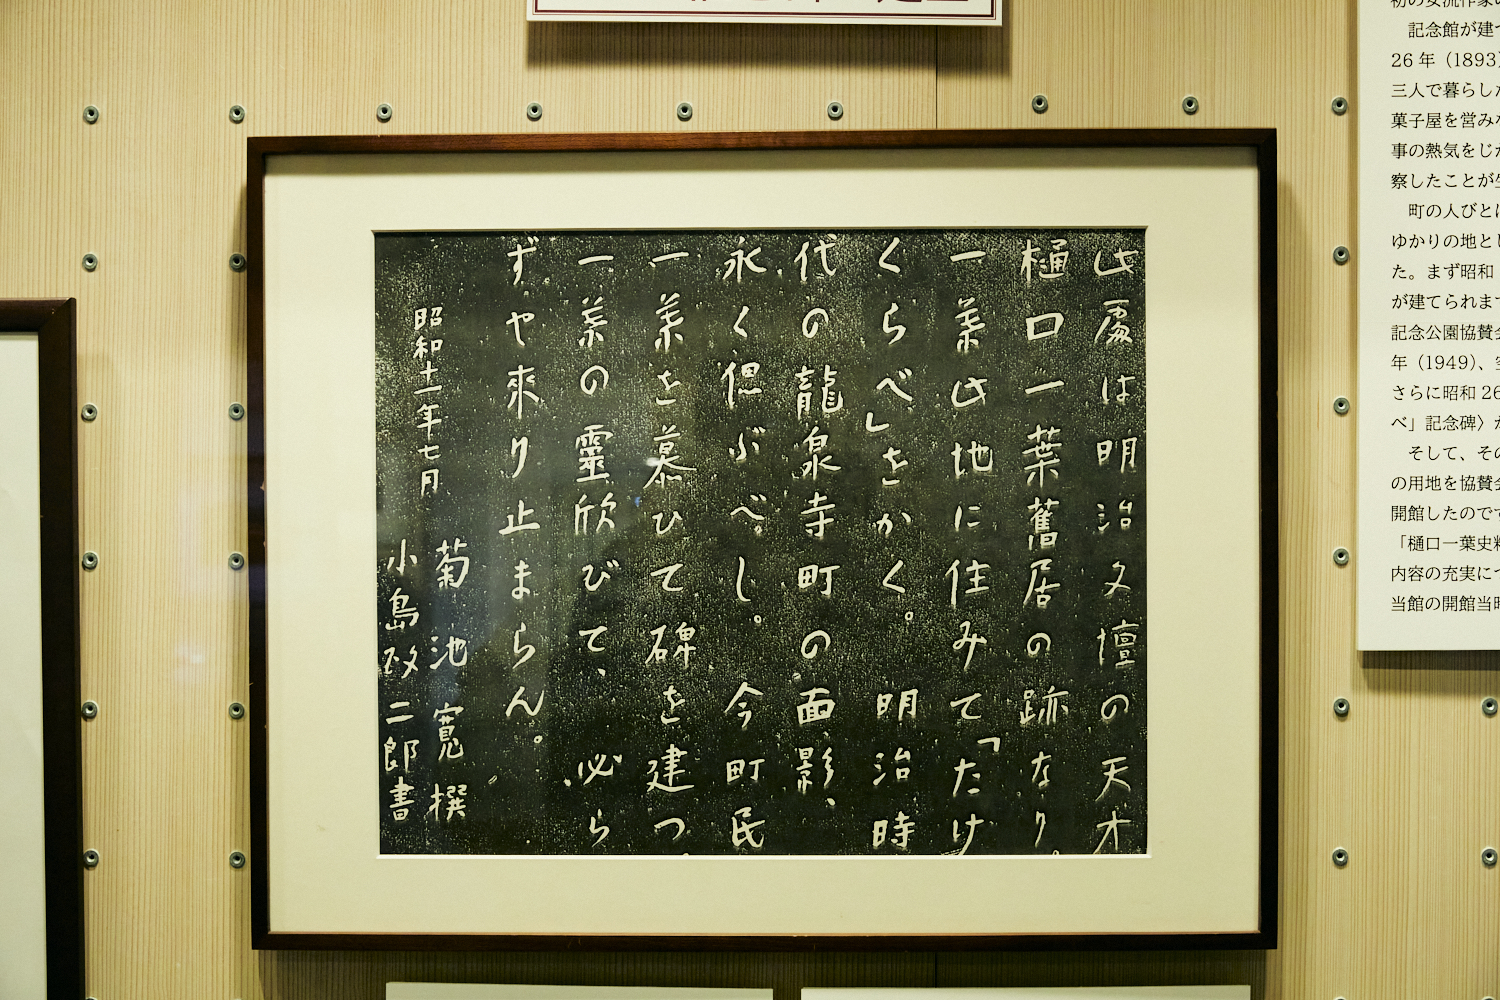 此處は明治文壇の天才
樋口一葉舊居の跡なり。
一葉此地に住みて「たけ
くらべ」をかく。明治時
代の龍泉寺町の面影、
永く偲ぶべし。今町民
一葉を慕ひて碑を建つ、
一葉の靈欣びて、必ら
ずや來り止まらん。
昭和十一年七月
菊池寛撰
小島政二郎書
記念館が建
26 年（1893）
三人で暮らした
菓子屋を営みな
事の熱気をじか
察したことが生
町の人びとに
ゆかりの地とし
た。まず昭和
が建てられます
記念公園協賛会
年（1949）、
さらに昭和 26
べ」記念碑〉が
そして、その
の用地を協賛会
開館したのです
「樋口一葉史料
内容の充実につ
当館の開館当時